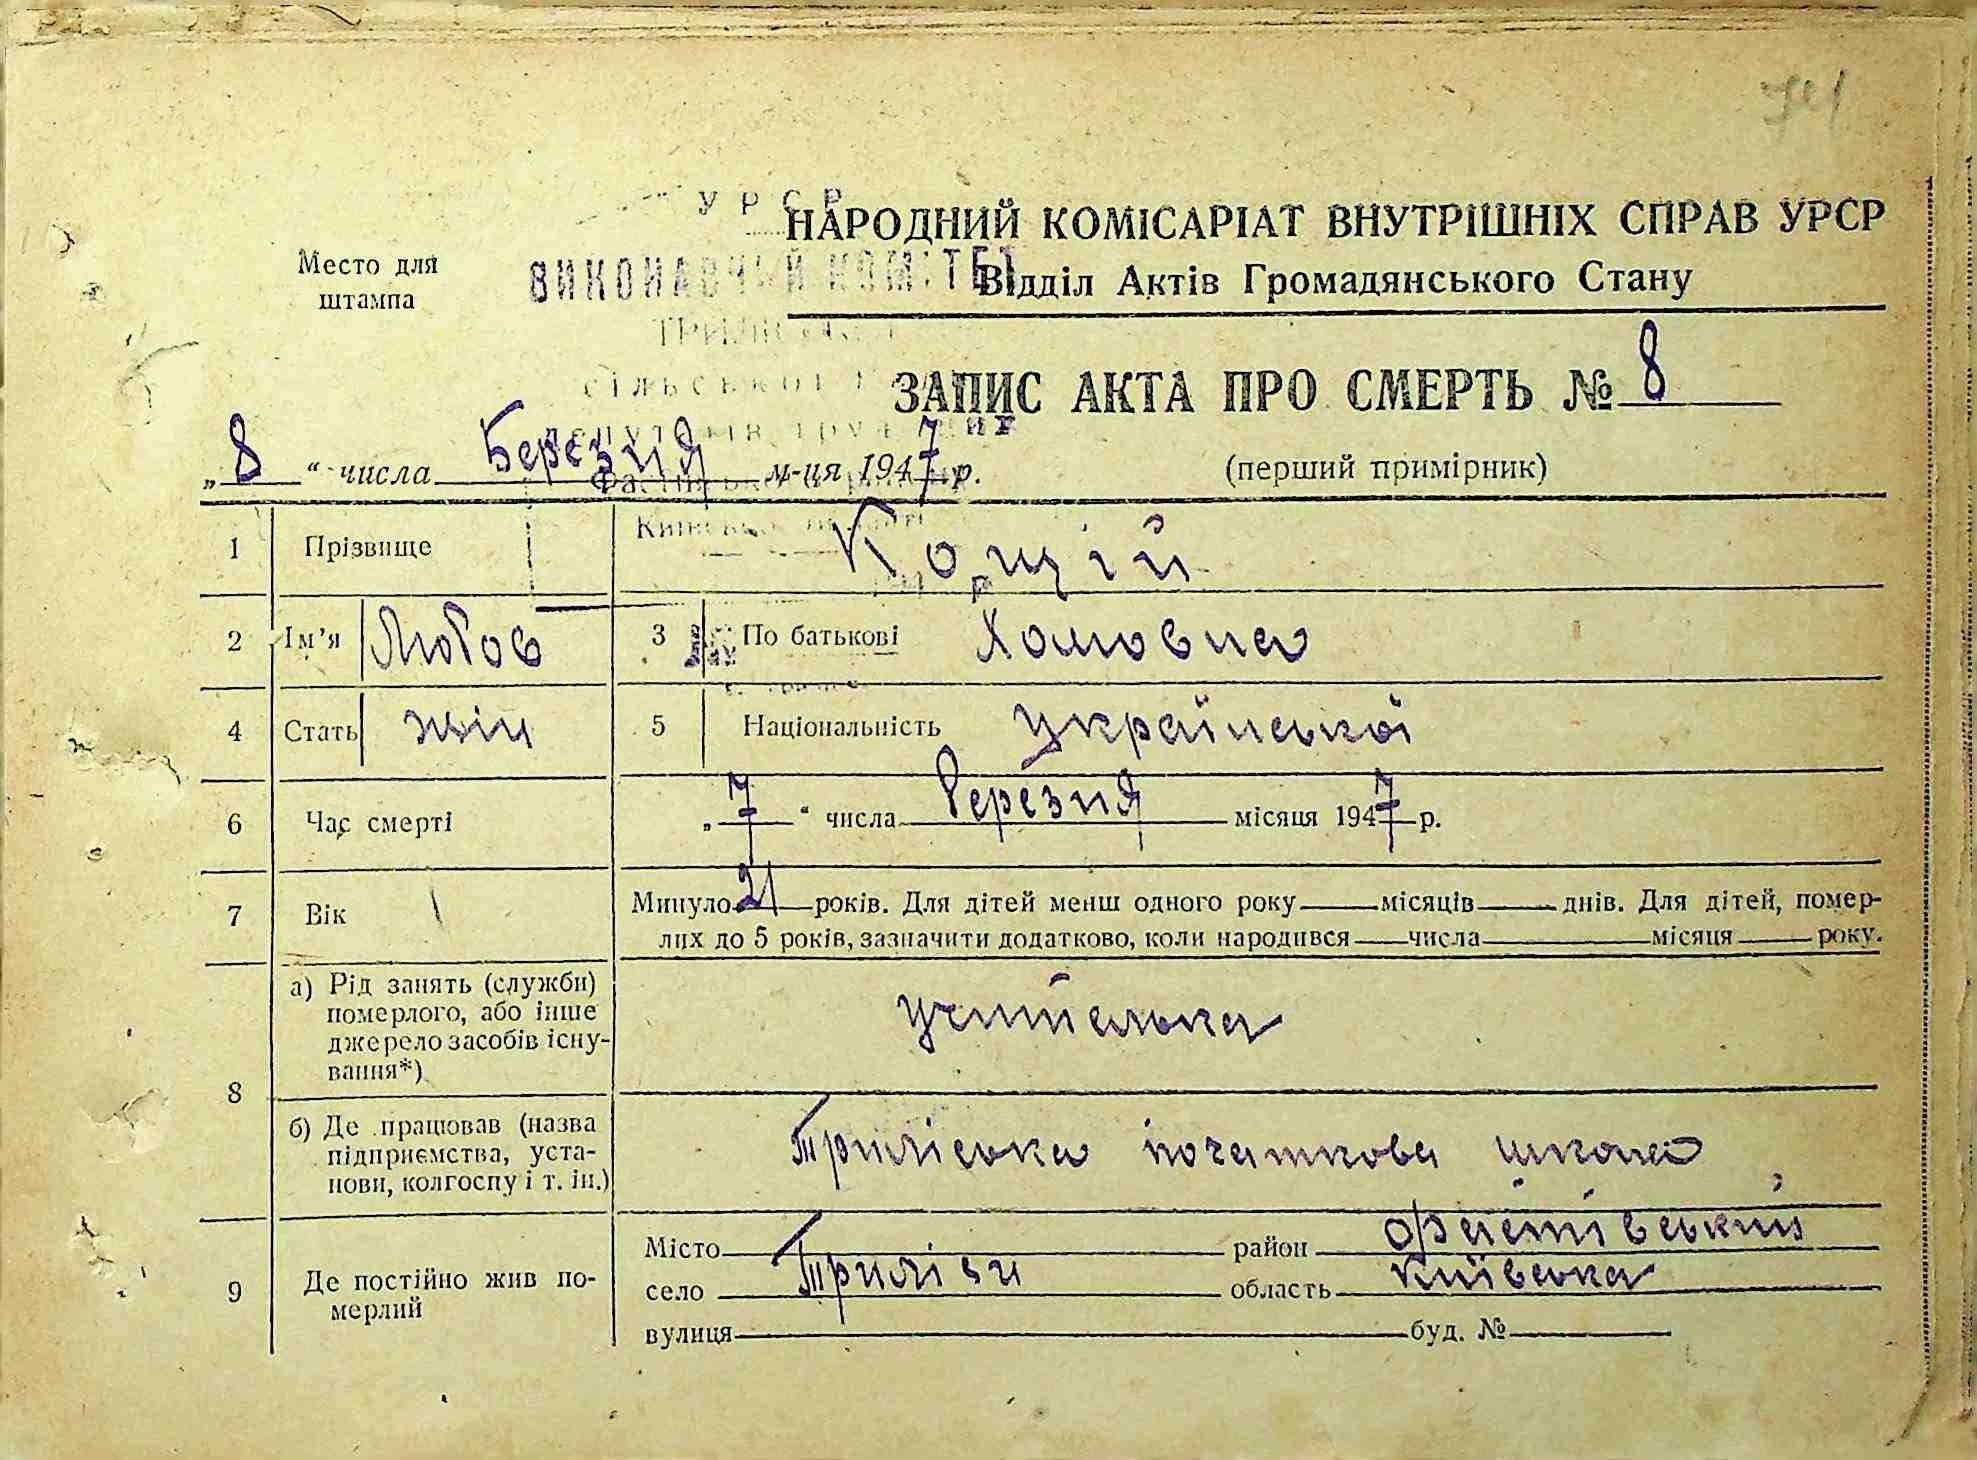 УРСР
НАРОДНИЙ КОМІСАРІАТ ВНУТРІШНІХ СПРАВ УРСР
Место для
штампа
ВИКОНАВЧИЙ КОМІТЕТ
Відділ Актів Громадянського Стану
ЗАПИС АКТА ПРО СМЕРТЬ № 8
„8“ числа Березня м-ця 1947 р.
(перший примірник)
1 Прізвище Кощій
2 Ім’я Любов 3 По батькові Хомовна
4 Стать жін 5 Національність української
6 Час смерті „7“ числа березня місяця 1947 р.
7 Вік Минуло 21 років. Для дітей менш одного року місяців днів. Для дітей, помер-
лих до 5 років, зазначити додатково, коли народився числа місяця року.
8 а) Рід занять (служби)
померлого, або інше
джерело засобів існу-
вання*)
учителька
б) Де працював (назва
підприємства, уста-
нови, колгоспу і т. ін.)
Триліська початкова школа
9 Де постійно жив по-
мерлий
Місто район Фастівський
село Триліси область Київська
вулиця буд. №